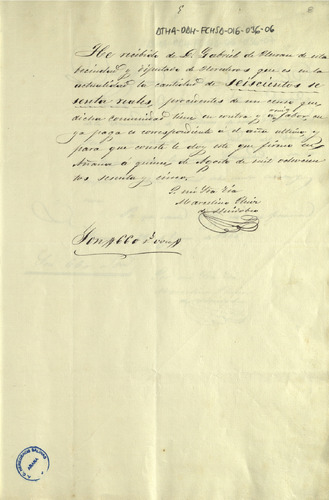 8
ATHA-DAH-FCHSD-016-036-06
He recibido de D. Gabriel de de esta
vecindad y Diputado de Herederos que es en la
actualidad la cantidad de seiscientos se
senta reales, procedentes de un censo que
dicha comunidad tiene en contra y en mi favor, cu
ya paga es correspondiente á el año ultimo, y
para que conste le doy este que firmo en
Añana á quince de Agosto de mil ochocien
tos sesenta y cinco.
P. mi Sra Tia
Marcelino
de
Son 660 rs von
AÑANA